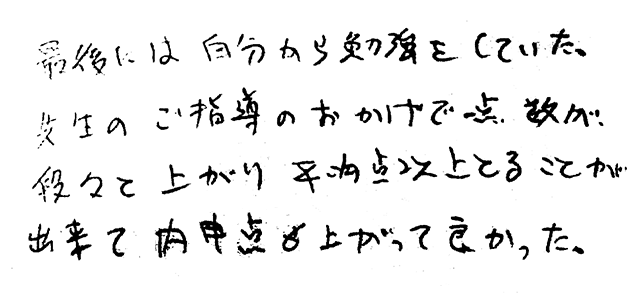 最後には自分から勉強をしていた。
先生のご指導のおかげで点数が
段々と上がり平均点以上とることが
出来て内申点も上がって良かった。